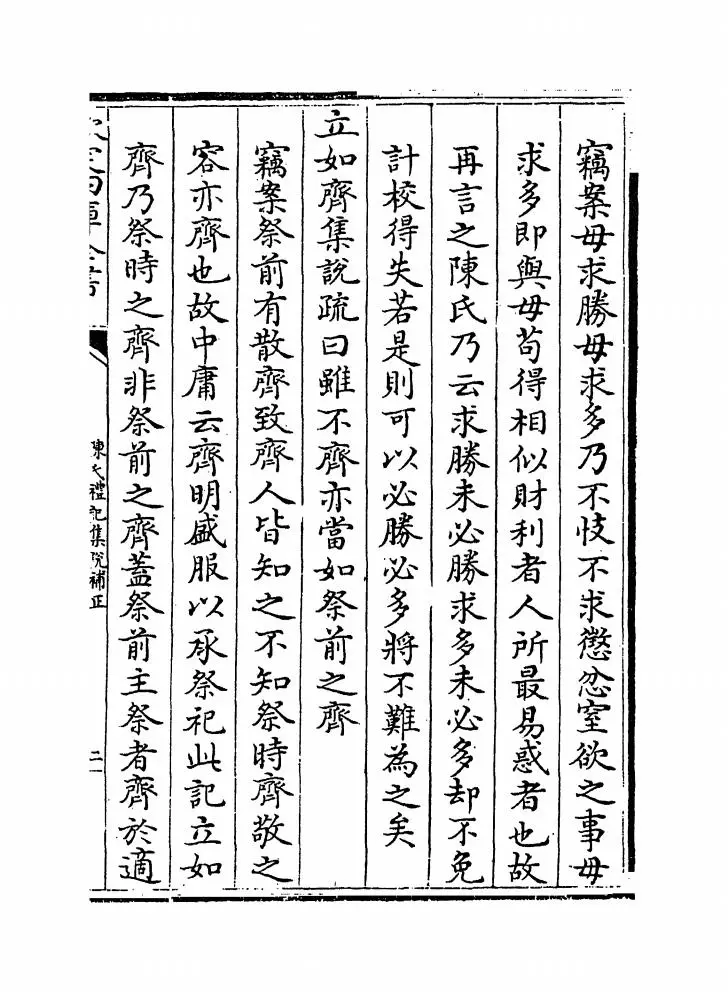 竊案毋求勝毋求多乃不忮不求懲忿窒欲之事毋
求多即與毋苟得相似財利者人所最易惑者也故
再言之陳氏乃云求勝未必勝求多未必多却不免
計校得失若是則可以必勝必多將不難為之矣
立如齊集説疏曰雖不齊亦當如祭前之齊
竊案祭前有散齊致齊人皆知之不知祭時齊敬之
容亦齊也故中庸云齊明盛服以承祭祀此記立如
齊乃祭時之齊非祭前之齊蓋祭前主祭者齊於適
欽定四庫全書
陳氏禮記集説補正